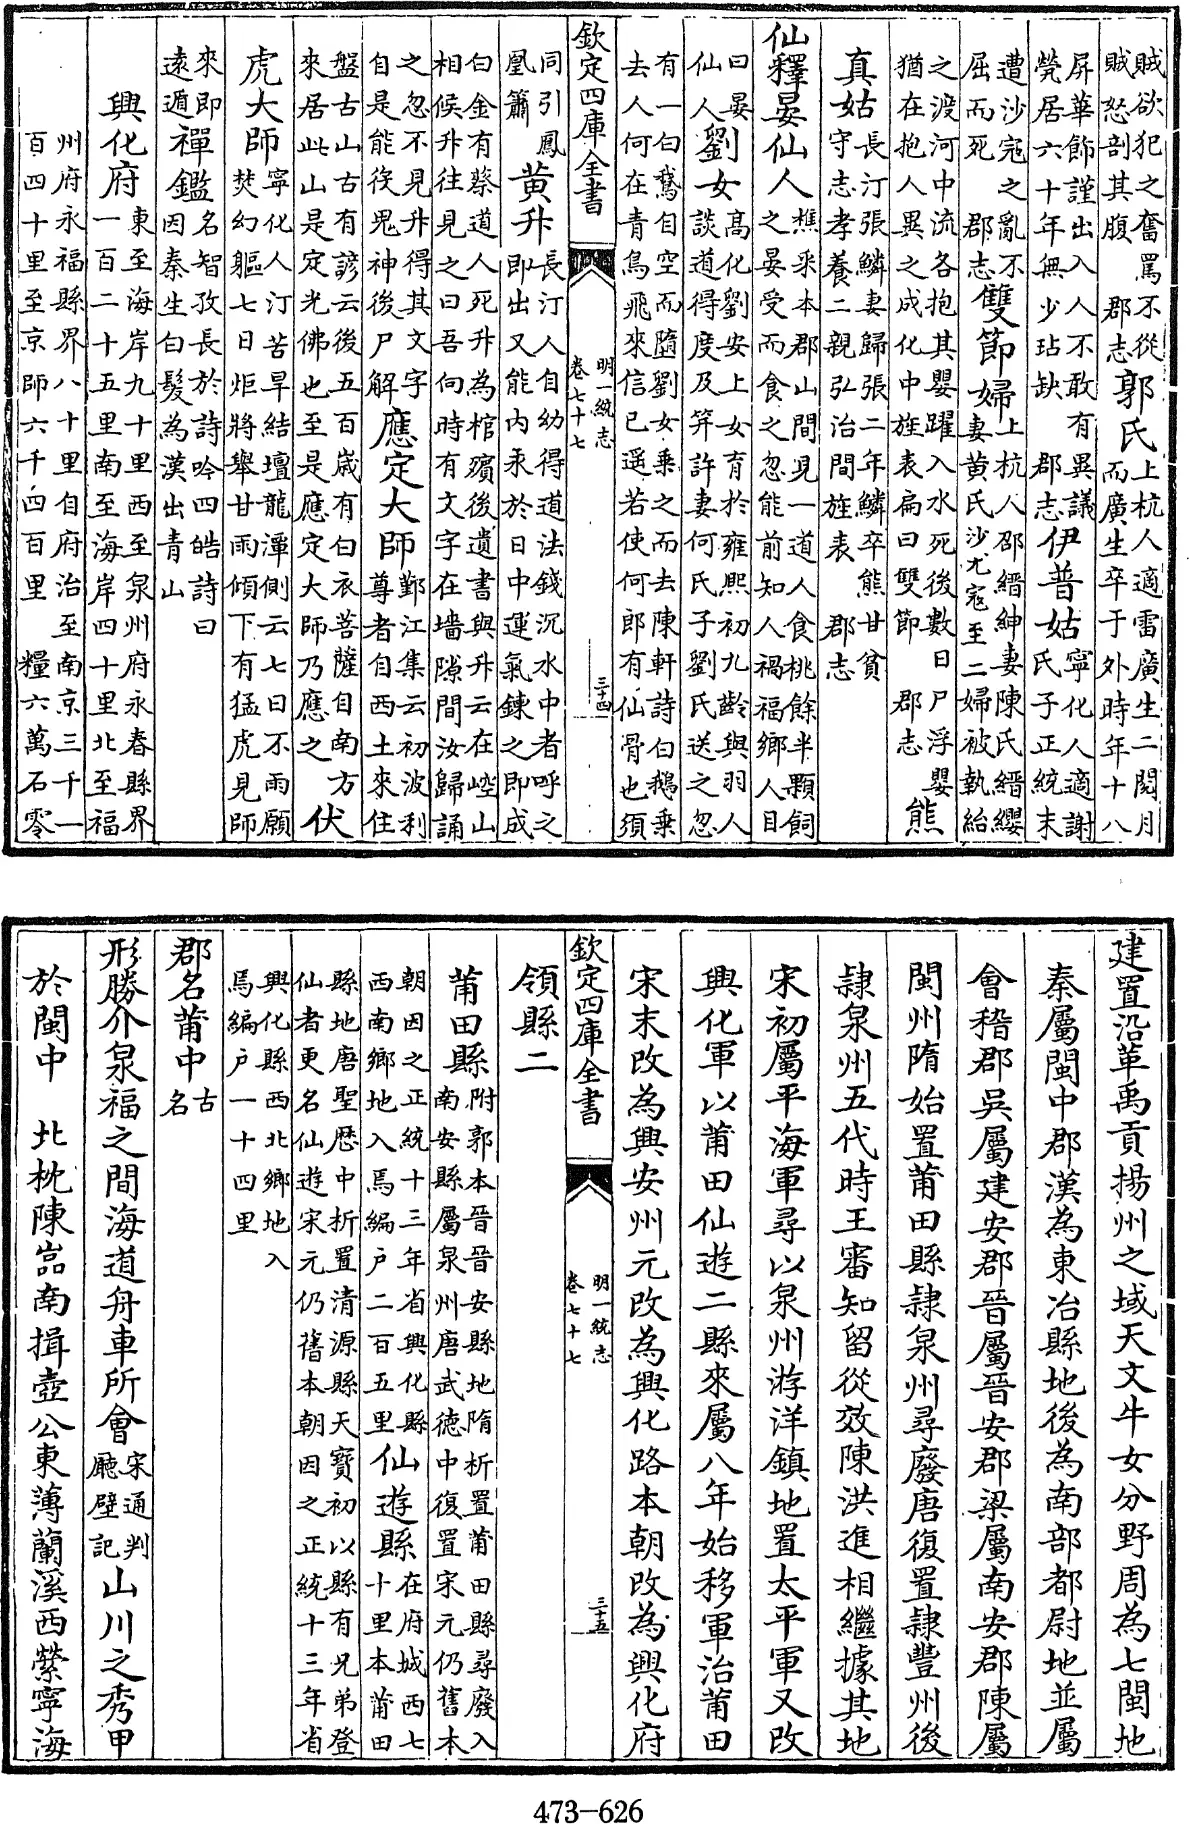 賊欲犯之奮罵不從賊怒剖其腹 郡志郭氏上杭人適雷廣生二閱月而廣生卒于外時年十八
屏華飾謹出入人不敢有異議煢居六十年無少玷缺 郡志伊普姑寧化人適謝氏子正統末
遭沙寇之亂不屈而死 郡志雙節婦上杭人邵縉紳妻陳氏縉纓妻黃氏沙尤寇至二婦被執紿
之渡河中流各抱其嬰躍入水死後數日尸浮嬰猶在抱人異之成化中旌表扁曰雙節 郡志熊
真姑長汀張鱗妻歸張二年鱗卒熊甘貧守志孝養二親弘治間旌表 郡志
仙釋晏仙人樵采本郡山間見一道人食桃餘半顆飼之晏受而食之忽能前知人禍福鄉人目
曰晏仙人劉女高化劉安上女育於雍熙初九齡與羽人談道得度及笄許妻何氏子劉氏送之忽
有一白鵞自空而隨劉女乘之而去陳軒詩白鵝乘去人何在青鳥飛來信已遥若使何郎有仙骨也須
欽定四庫全書 明一統志卷七十七 三十四
同引鳳凰簫黄升長汀人自幼得道法錢沉水中者呼之即出又能内汞於日中運氣鍊之即成
白金有蔡道人死升為棺殯後遺書與升云在崆山相候升往見之曰吾向時有文字在墻隙間汝歸誦
之忽不見升得其文字自是能役鬼神後尸解應定大師鄞江集云初波利尊者自西土來住
盤古山古有諺云後五百歲有白衣菩薩自南方來居此山是定光佛也至是應定大師乃應之伏
虎大師寧化人汀苦旱結壇龍潭側云七日不雨願焚幻軀七日炬將舉甘雨傾下有猛虎見師
來即遠遁禪鑑名智孜長於詩吟四皓詩曰因秦生白髮為漢出青山
興化府東至海岸九十里西至泉州府永春縣界一百二十五里南至海岸四十里北至福
州府永福縣界八十里自府治至南京三千一百四十里至京師六千四百里 糧六萬石零
建置沿革禹貢揚州之域天文牛女分野周為七閩地
秦屬閩中郡漢為東冶縣地後為南部都尉地並屬
會稽郡吳屬建安郡晉屬晉安郡梁屬南安郡陳屬
閩州隋始置莆田縣隷泉州尋廢唐復置隷豐州後
隷泉州五代時王審知留從效陳洪進相繼據其地
宋初屬平海軍尋以泉州游洋鎮地置太平軍又改
興化軍以莆田仙遊二縣來屬八年始移軍治莆田
宋末改為興安州元改為興化路本朝改為興化府
欽定四庫全書 明一統志卷七十七 三十五
領縣二
莆田縣附郭本晉晉安縣地隋析置莆田縣尋廢入南安縣屬泉州唐武德中復置宋元仍舊本
朝因之正統十三年省興化縣西南鄉地入焉編户二百五里仙遊縣在府城西七十里本莆田
縣地唐聖歷中析置清源縣天寶初以縣有兄弟登仙者更名仙遊宋元仍舊本朝因之正統十三年省
興化縣西北鄉地入焉編户一十四里
郡名莆中古名
形勝介泉福之間海道舟車所會宋通判廳壁記山川之秀甲
於閩中 北枕陳嵓南揖壺公東薄蘭溪西縈寧海
473-626